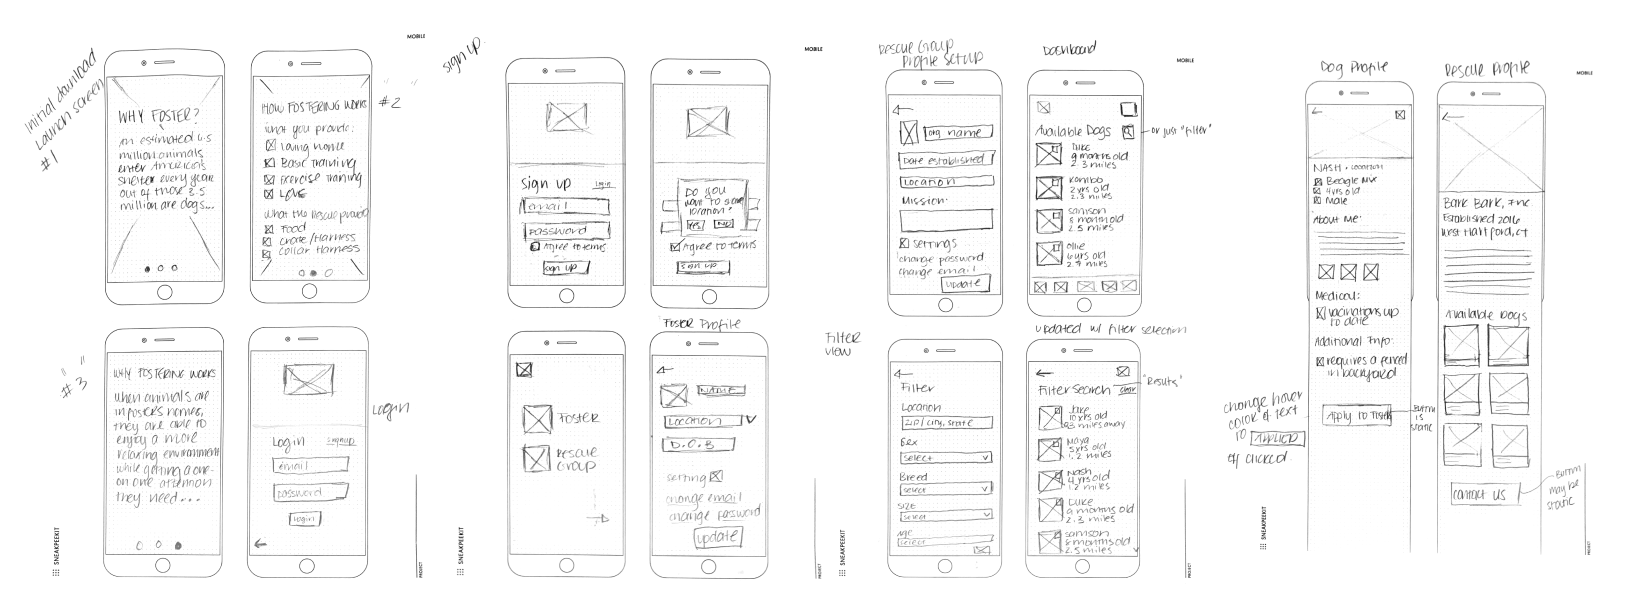 Initial download
Launch screen
#1
WHY FOSTER?
An estimated 6.5
million animals
enter America's
shelter every year
out of those 3.5
million are dogs...
MOBILE
HOW FOSTERING WORKS
" "
#2
What you provide:
Loving home
Basic Training
Exercise Training
LOVE
What the rescue provides
Food
Crate/Harness
Collar Harness
" "
#3
WHY FOSTERING WORKS
When animals are
in fosters homes,
they are able to
enjoy a more
relaxing environment
while getting a one-
on one attention
they need...
Login
Login
signup
email
password
login
SNEAKPEEKIT
PROJECT
sign up
MOBILE
sign up
Login
email
password
Agree to terms
sign up
Do you
want to share
location?
YES
NO
Agree to terms
sign up
FOSTER
RESCUE
GROUP
Foster Profile
NAME
LOCATION
D.O.B
setting
change email
change password
update
SNEAKPEEKIT
PROJECT
Rescue Group
Profile Setup
org name
Date established
Location
Mission:
settings
change password
change email
update
Dashboard
MOBILE
Available Dogs
or just "filter"
Duke
9 months old
2.3 miles
2 yrs old
2.3 miles
Samson
8 months old
2.5 miles
Ollie
6 yrs old
2.7 miles
Filter
view
Filter
Location
ZIP/city, state
Sex
select
Breed
select
SIZE
select
Age
select
updated w/ filter selection
Filter Search
clear
"Results"
Jake
10 yrs old
.93 miles away
Maya
5 yrs old
1.2 miles
Nash
4 yrs old
1.2 miles
Duke
9 months old
2.3 miles
Samson
8 months old
2.5 miles
SNEAKPEEKIT
PROJECT
Dog Profile
NASH - location
Beagle Mix
4 yrs old
Male
About Me:
Medical:
vaccinations up
to date
Additional Info:
requires a fenced
in backyard
Apply to Foster
button
is
static
change hover
color & text
to APPLIED
if clicked
Rescue Profile
MOBILE
Bark Bark, Inc.
Established 2016
West Hartford, CT
Available Dogs
contact us
button
may be
static
SNEAKPEEKIT
PROJECT